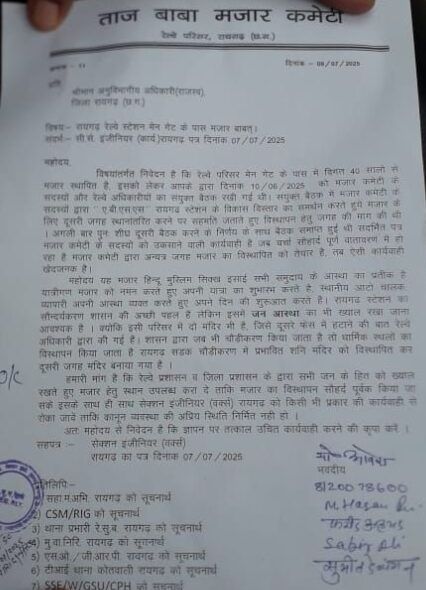 ताज बाबा मजार कमेटी
रेल्वे परिसर, रायगढ़ (छ.ग.)
दिनांक - 08/07/2025
प्रति
श्रीमान अनुविभागीय अधिकारी(राजस्व),
जिला रायगढ़ (छ.ग.)
विषय:- रायगढ़ रेल्वे स्टेशन मेन गेट के पास मजार बाबत्।
संदर्भ:- सी.से. इंजीनियर (कार्य)रायगढ़ पत्र दिनांक 07/07/2025
महोदय,
विषयांतर्गत निवेदन है कि रेल्वे परिसर मेन गेट के पास में विगत 40 सालो से
मजार स्थापित है, इसको लेकर आपके द्वारा दिनांक 10/06/2025 को मजार कमेटी के
सदस्यों और रेल्वे अधिकारियों का संयुक्त बैठक रखी गई थी। संयुक्त बैठक में मजार कमेटी के
सदस्यों द्वारा "ए.बी.एस.एस" रायगढ़ स्टेशन के विकास विस्तार का समर्थन करते हुये मजार के
लिए दूसरी जगह स्थानांतरित करने पर सहमति जताते हुए विस्थापन हेतु जगह की मांग की थी
। अगली बार पुनः शीघ्र दूसरी बैठक करने के निर्णय के साथ बैठक समाप्त हुई थी संदर्भित पत्र
मजार कमेटी के सदस्यों को उकसाने वाली कार्यवाही है जब चर्चा सौहार्द पूर्ण वातावरण में हो
रहा है मजार कमेटी द्वारा अन्यत्र जगह मजार का विस्थापित को तैयार है, तब ऐसी कार्यवाही
खेदजनक है।
महोदय यह मजार हिन्दू मुस्लिम सिक्ख इसाई सभी समुदाय के आस्था का प्रतीक है
यात्रीगण मजार को नमन करते हुए अपनी यात्रा का शुभारंभ करते है, स्थानीय आटो चालक
व्यापारी अपनी आस्था व्यक्त करते हुए अपने दिन की शुरूआत करते है। रायगढ़ स्टेशन का
सौन्दर्यकरण शासन की अच्छी पहल है लेकिन इसमें जन आस्था का भी ख्याल रखा जाना
आवश्यक है । क्योंकि इसी परिसर में दो मंदिर भी है, जिसे दूसरे फेस में हटाने की बात रेल्वे
अधिकारी द्वारा की गई है। शासन द्वारा जब भी चौड़ीकरण किया जाता है तो धार्मिक स्थलों का
विस्थापन किया जाता है रायगढ़ सड़क चौड़ीकरण में प्रभावित शनि मंदिर को विस्थापित कर
दूसरी जगह मंदिर बनाया गया है ।
हमारी मांग है कि रेल्वे प्रशासन व जिला प्रशासन के द्वारा सभी जन के हित को ख्याल
रखते हुए मजार हेतु स्थान उपलब्ध करा दे ताकि मजार का विस्थापन सौहार्द पूर्वक किया जा
सके इसके साथ ही साथ सेक्शन इंजीनियर (वर्क्स) रायगढ़ को किसी भी प्रकार की कार्यवाही से
रोका जावे ताकि कानून व्यवस्था की अप्रिय स्थिति निर्मित नही हो ।
अतः महोदय से निवेदन है कि ज्ञापन पर तत्काल उचित कार्यवाही करने की कृपा करें ।
सहपत्र :- सेक्शन इंजीनियर (वर्क्स)
रायगढ़ का पत्र दिनांक 07/07/2025
O/C
भवदीय
8120078600
M. Hasan
Sabir Ali
प्रतिलिपि:-
सहा.म.अभि. रायगढ़ को सूचनार्थ
2) CSM/RIG को सूचनार्थ
3) थाना प्रभारी रे.सु.ब. रायगढ़ को सूचनार्थ
4) मु.वा.निरि. रायगढ़ को सूचनार्थ
5) एस.ओ./जी.आर.पी. रायगढ़ को सूचनार्थ
6) टीआई थाना कोतवाली रायगढ़ को सूचनार्थ
7) SSE/W/GSU/CPH को सूचनार्थ